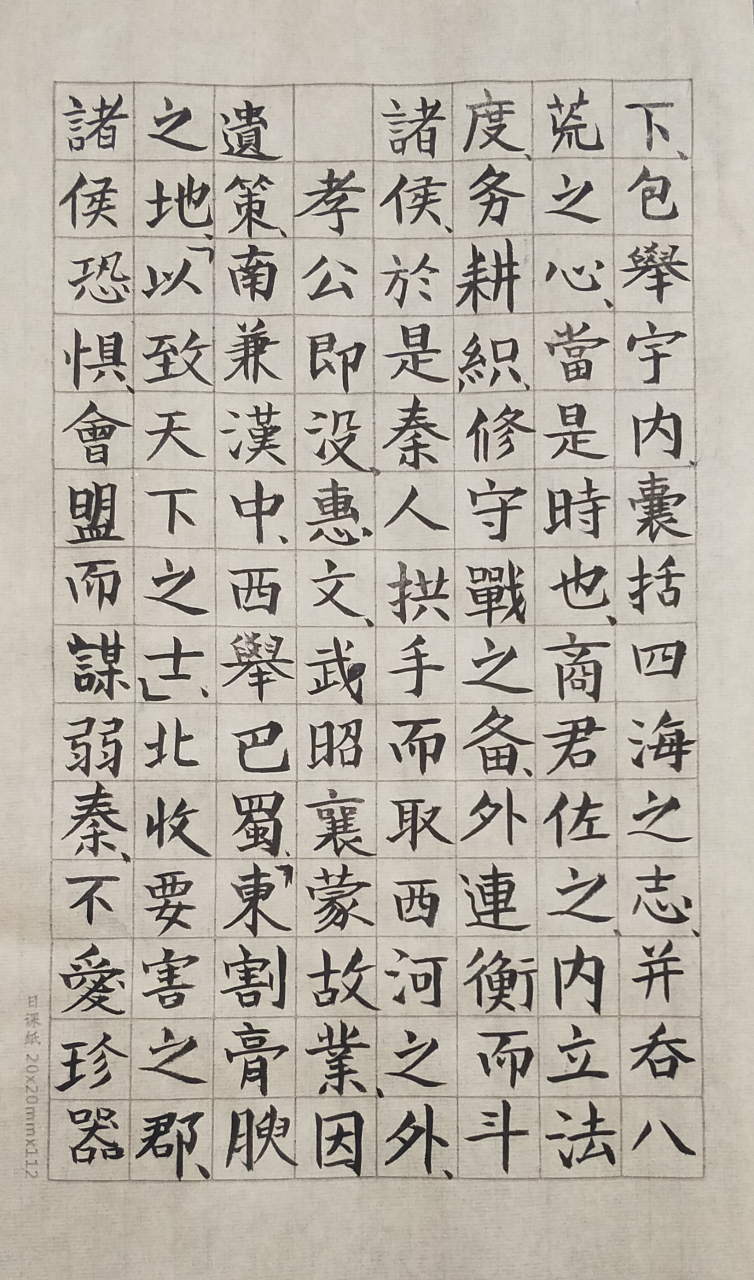 下、包舉宇内、囊括四海之志、并吞八
荒之心、當是時也、商君佐之、内立法
度、务耕織、修守戰之备、外連衡而斗
諸侯、於是秦人拱手而取西河之外、
孝公即没、惠文、武昭襄蒙故業、因
遺策、南兼漢中、西舉巴蜀、「東割膏腴
之地、「以致天下之士」、北收要害之郡、
諸侯恐惧、會盟而謀弱秦、不愛珍器
日课纸 20x20mmx112